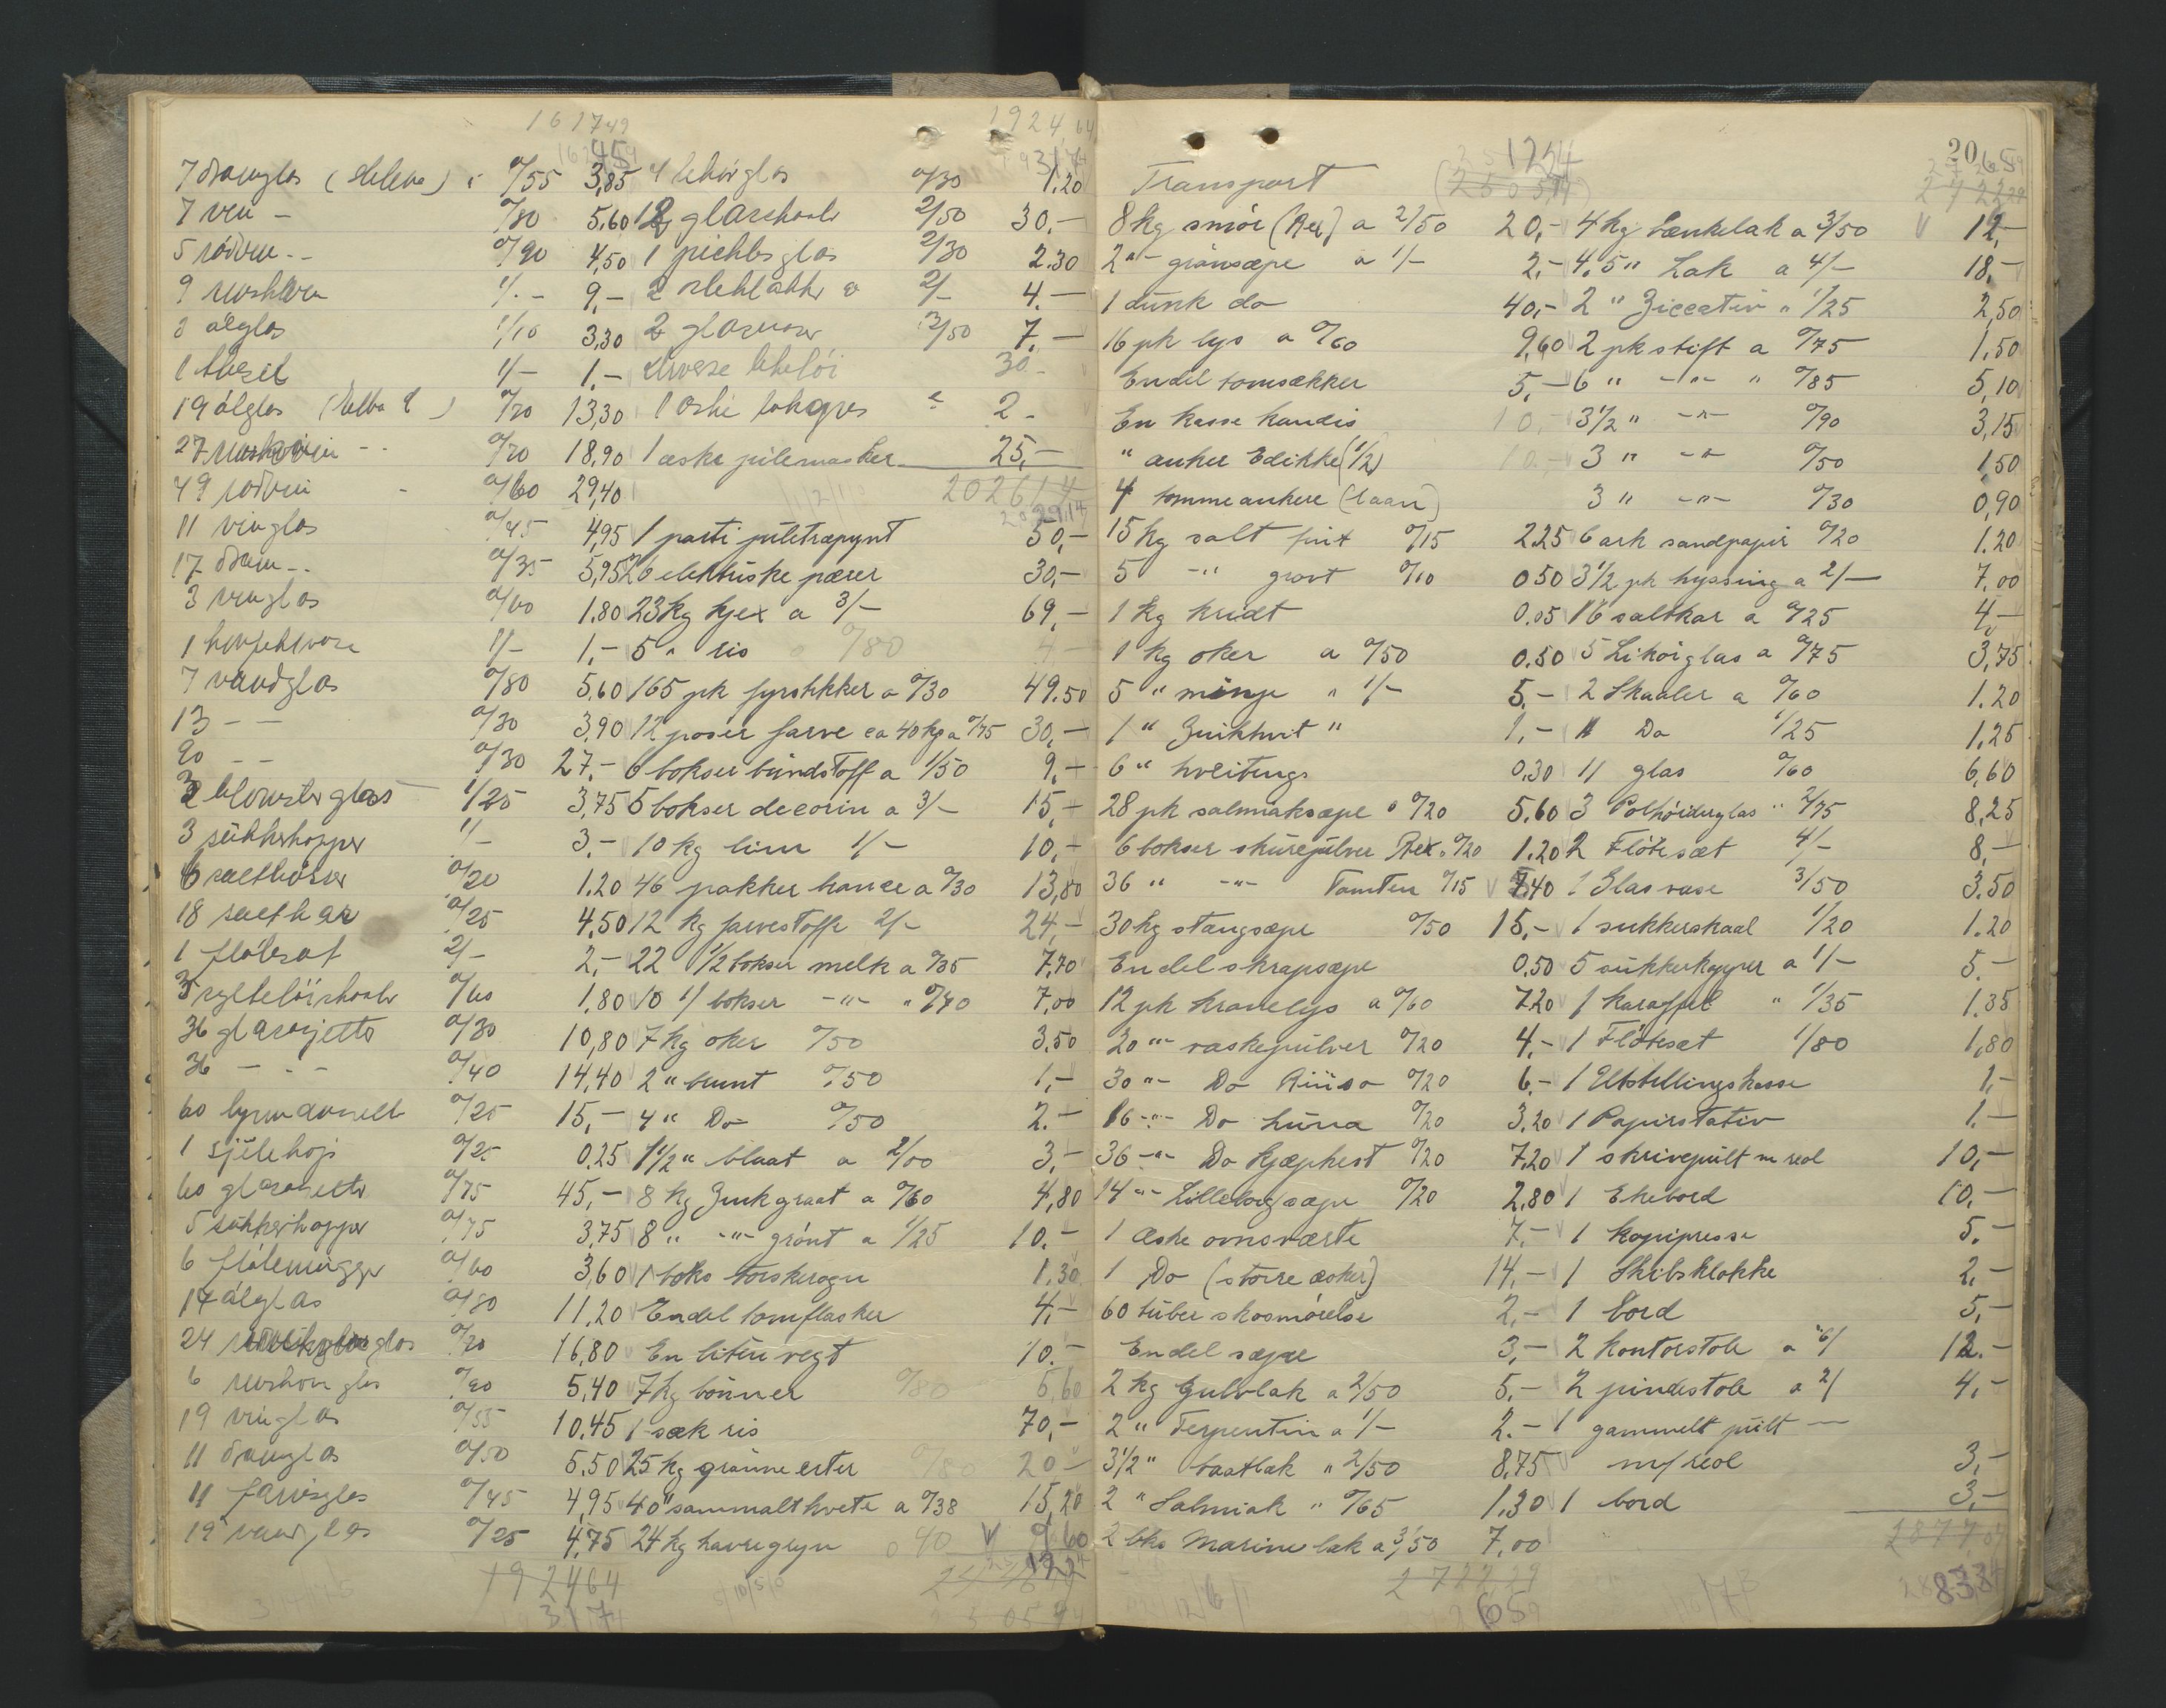 1617 49
1924,64
20
7 dramglas (Helene) a 0/55 3,85
7 vin - 0/80 5,60
5 rödvin - - 0/90 4,50
9 1/- 9,-
3 ölglas 1/10 3,30
1 1/- 1,-
19 ölglas 0/70 13,30
27 0/70 18,90
49 rödvin - 0/60 29,40
11 vinglas 0/45 4,95
17 dram - - 0/35 5,95
3 vinglas 0/60 1.80
1 1/- 1,-
7 vandglas 0/80 5,60
13 - - 0/30 3,90
90 - - 0/30 27,-
3 blomsterglas 1/25 3,75
3 sukkerkopper 1/- 3,-
6 0/20 1.20
18 saltkar 0/25 4,50
1 flötesat 2/- 2,-
3 0/60 1,80
36 glas 0/30 10,80
36 - - - 0/40 14,40
60 0/25 15,-
1 0/25 0,25
60 glas 0/75 45,-
5 sukkerkopper 0/75 3,75
6 flötemugger 0/60 3,60
14 ölglas 0/80 11,20
24 glas 0/70 16,80
6 glas 0/90 5,40
19 vinglas 0/55 10,45
11 dramglas 0/50 5,50
11 glas 0/45 4,95
19 0/25 4,75
1924 64
4 likörglas 0/30 1.20
12 glasskaale 2/50 30,-
1 picklesglas 2/30 2.30
2 a 2/- 4.-
2 glasvaser 3/50 7,-
diverse 30.-
1 2.-
1 æske pilemasker 25,-
2026 14
1 parti juletræpynt 50,-
26 elektriske pærer 30,-
23 kg kjex a 3/- 69,-
5 " ris 0/80 4-
165 pk fyrstikker a 0/30 49.50
12 poser farve ca 40 kg a 0/75 30,-
6 bokser bundstoff a 1/50 9,-
5 bokser decorin a 3/- 15,-
10 kg lim 1/- 10,-
46 pakker a 0/30 13,80
12 kg farvestoffe 2/- 24,-
22 1/2 bokser melk a 0/35 7,70
10 1/1 bokser -"- " 0/70 7,00
7 kg oker 0/50 3.50
2 " brunt 0/50 1,-
4 " Do 0/50 2.-
1 1/2 " blaat a 2/00 3,-
8 kg Zinkgraat a 0/60 4,80
8 " -"- grönt a 1/25 10.-
1 boks torskerogn 1.30
Endel tomflasker 4,-
En liten vegt 10.-
7 kg bönner 0/80 5,60
1 sæk ris 70,-
25 kg grönne erter 0/80 20-
40 " sammalt hvete a 0/38 15,20
24 kg havregryn 0 40 9 60
Transport
8 kg smör (Rex) a 2/50 20,-
2 "- grönsæpe a 1/- 2,-
1 dunk do 40,-
16 pk lys a 0/60 9,60
Endel tomsækker 5,-
En kasse kandis 10,-
" anker Edikke (1/2) 10,-
4 tomme ankere (laan)
15 kg salt fint 0/15 2.25
5 -" grovt 0/10 0 50
1 kg kridt 0,05
1 kg oker a 0/50 0.50
5 " mönje " 1/- 5,-
1 " Zinkhvit " 1,-
6 " hveitings 0,30
28 pk salmiaksæpe a 0/20 5.60
6 bokser skurepulver Rex a 0/20 1.20
36 " -"- Tomten 0/15 7.40
30 kg stangsæpe 0/50 15,-
Endel skrapsæpe 0,50
12 pk kronelys a 0/60 7.20
20 "- vaskepulver 0/20 4.-
30 "- Do Rinso 0/20 6.-
16 -"- Do Luna 0/20 3.20
36 -"- Do Kjæphest 0/20 7,20
14 "- Lilleborgsæpe 0/20 2,80
1 æske ovnsværte 7,-
1 Do (större æsker) 14,-
60 tuber skosmörelse 2,-
Endel sæpe 3,-
2 kg Gulvlak a 2/50 5,-
2 " Terpentin a 1/- 2.-
3 1/2 " baatlak " 2/50 8,75
2 " Salmiak " 0/65 1,30
2 bks Marine lak a 3/50 7,00
2722,29
4 kg Lænkelak a 3/50 12,-
4,5 " Lak a 4/- 18,-
2 " Ziccativ " 1/25 2,50
2 pk stift a 0/75 1,50
6 " -"- " 0/85 5,10
3 1/2 " -"- 0/90 3,15
3 " -"- 0/50 1,50
3 " -"- 0/30 0,90
6 ark sandpapir 0/20 1.20
3 1/2 pk hyssing a 2/- 7,00
16 saltkar a 0/25 4,-
5 Likörglas a 0/75 3,75
2 Skaaler a 0/60 1.20
1 Do 1/25 1,25
11 glas 0/60 6,60
3 " 2/75 8,25
2 Flötesæt 4/- 8,-
1 Glasvase 3/50 3.50
1 sukkerskaal 1/20 1.20
5 sukkerkopper a 1/- 5.-
1 karaffel " 1/35 1.35
1 Flötesæt 1/80 1,80
1 Utstillingskasse 1,-
1 Papirstativ 1.-
1 skrivepult m reol 10,-
1 Ekebord 10,-
1 Kopipresse 5.-
1 Skibsklokke 2,-
1 bord 5,-
2 kontorstole a 6/ 12.-
2 pindestole a 2/ 4,-
1 gammelt pult -
m/ reol 3,-
1 bord 3,-